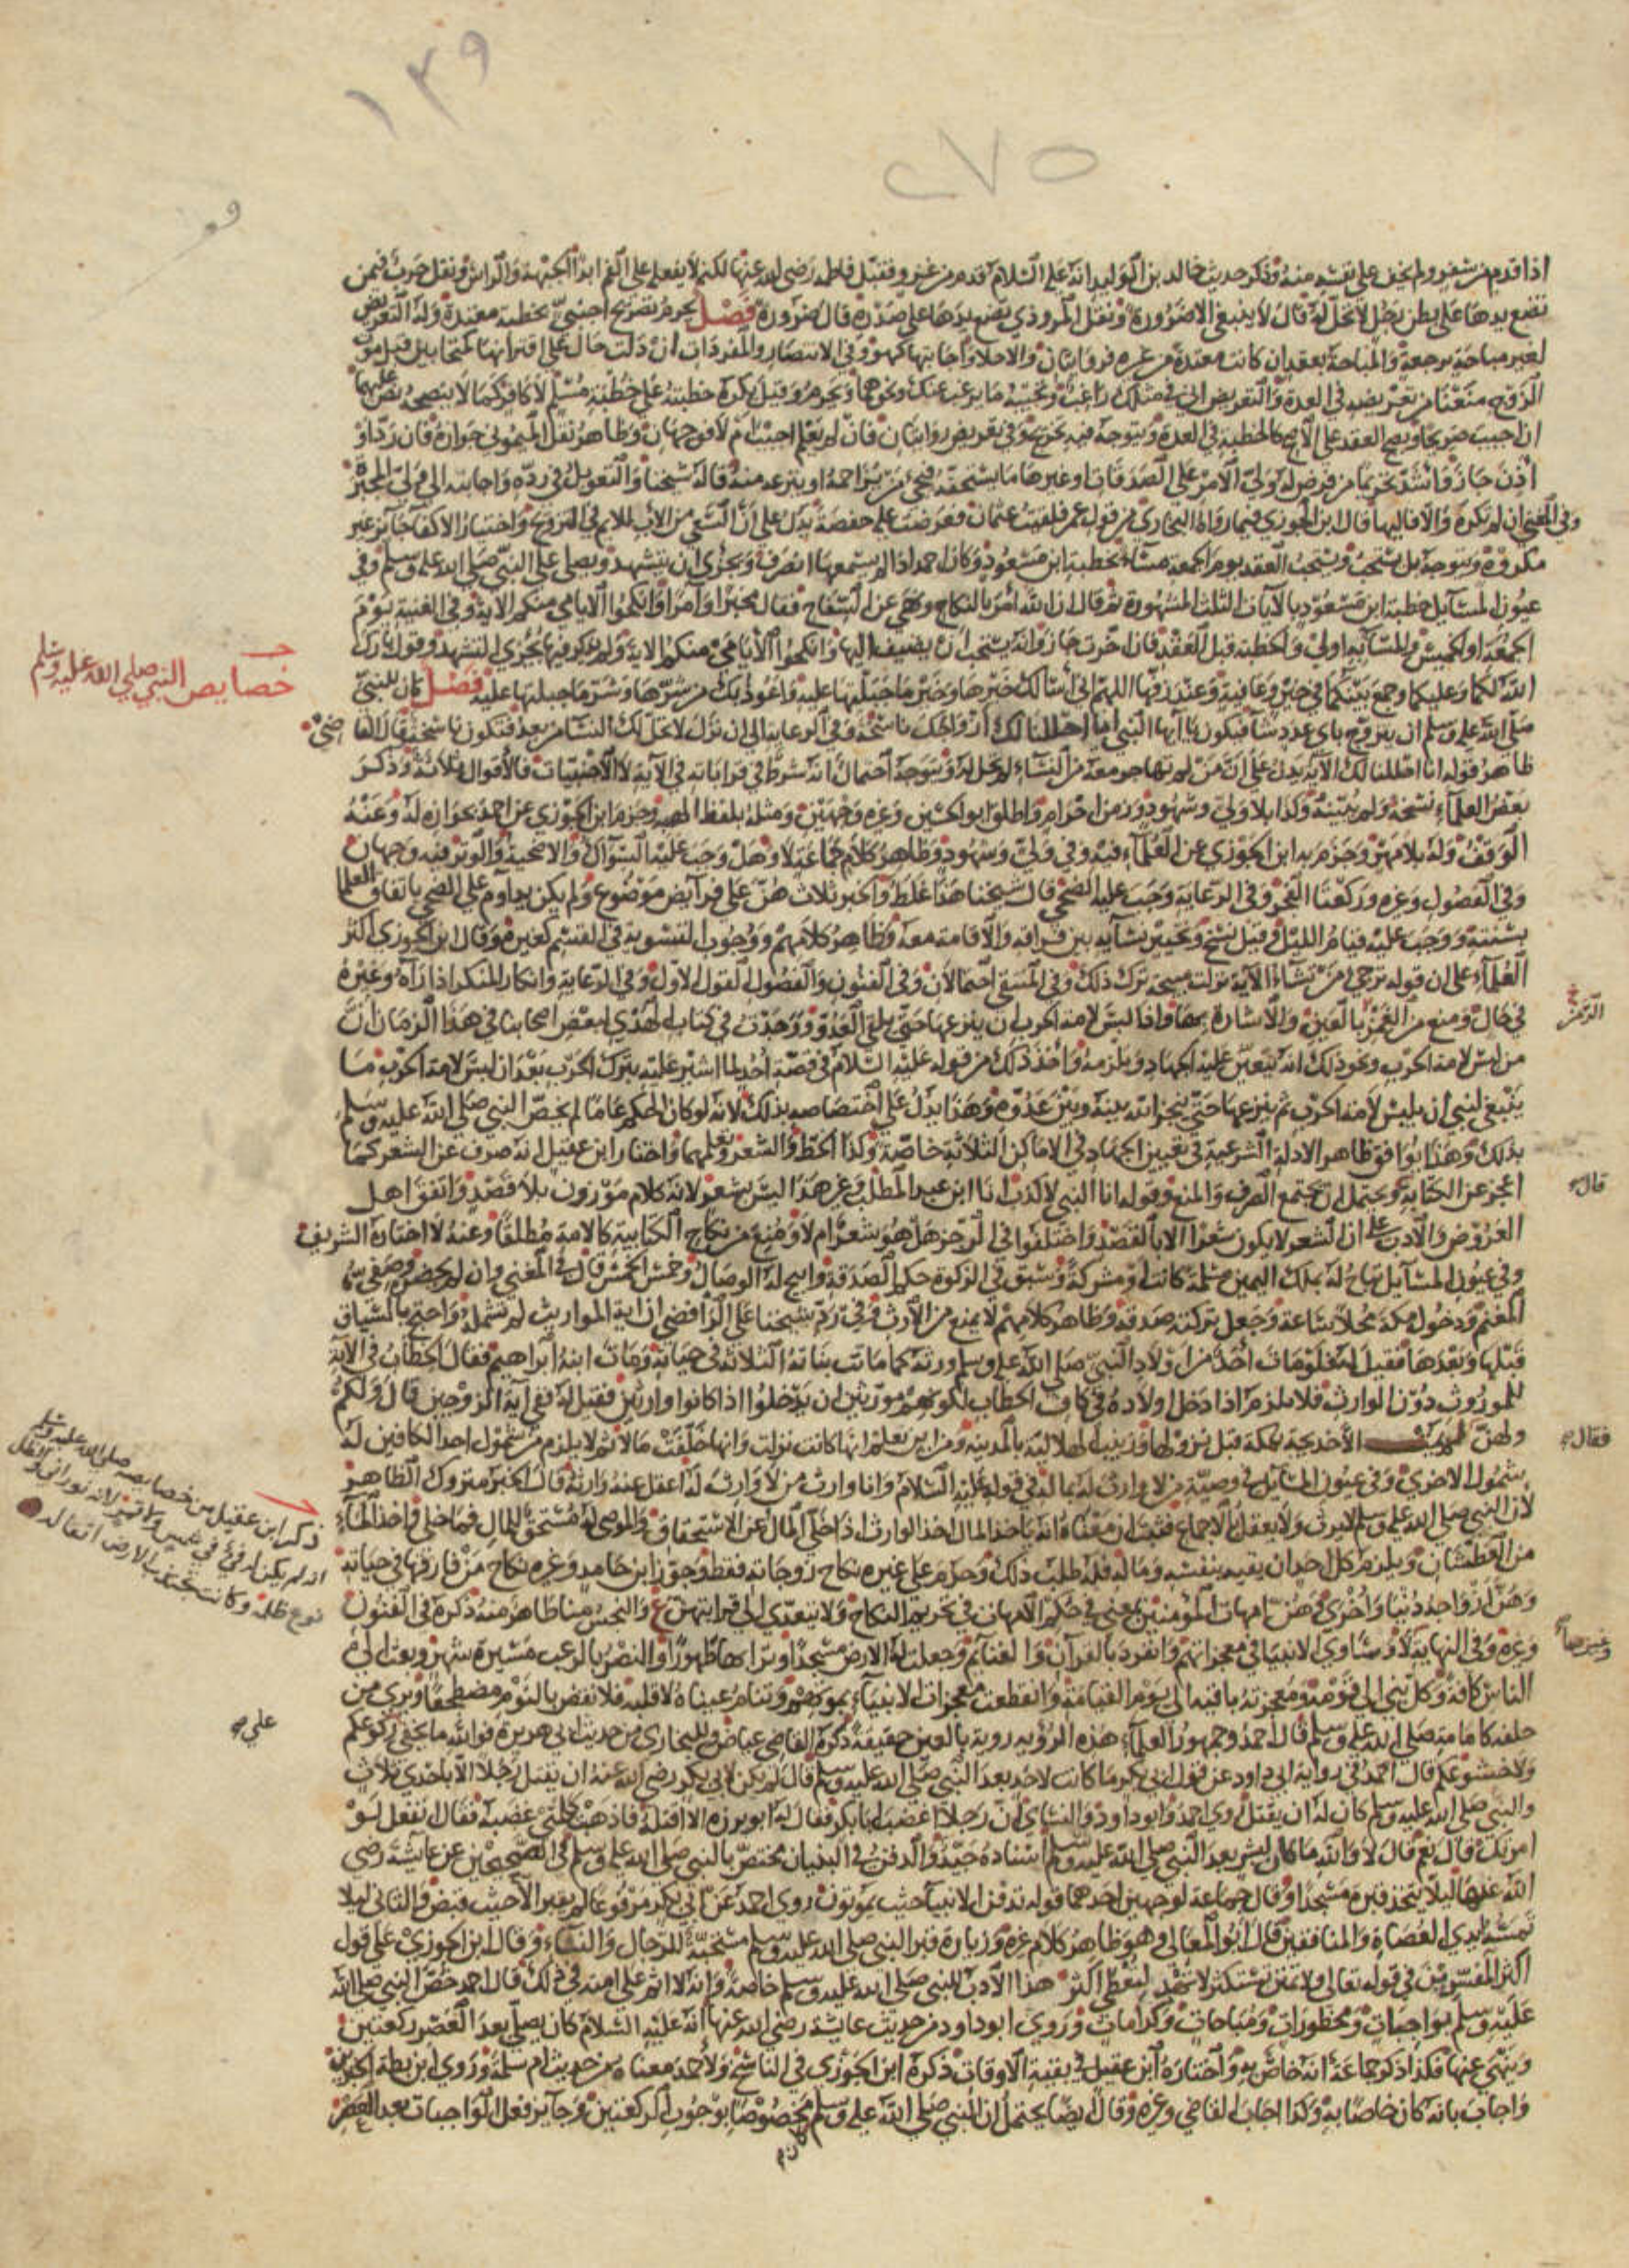 ١٣٩
٢٧٥
اذا قدم من سفر ولم يخف على نفسه منه وذكر حديث خالد بن الوليد انه عليه السلام قدم من غزو فقبل فاطمة رضى الله عنها لكنه لا يفعله على الفم ابدا الجبهة والراس ونقل حرب فيمن
تضع يدها على بطن رجل لا تحل له قال لا ينبغي الا ضرورة ونقل المروذي تضع يدها على صدره قال ضرورة فصل يحرم تصريح اجنبي بخطبة معتدة وله التعريض
لغير مباحة برجعة والمباحة بعقد ان كانت معتدة من غيره فروايتان والاحلا واجابتها كهو وفي الانتصار والمفردات ان دلت حال على اقترانهما كمتحابين قبل موت
الزوج منعنا من تعريضه في العدة والتعريض اني في مثلك راغب وتجيبه ما يرغب عنك ونحوهما وتحرم وقيل يكره خطبته على خطبة مسلم لا كافر كما لا ينصحه نص عليهما
ان اجيب صريحا ويصح العقد على الاصح كالخطبة في العدة ويتوجه فيه تخريج وفي تعريض روايتان فان لم يعلم اجيب ام لا فوجهان وظاهر نقل الميموني جوازه فان رد او
اذن جاز واشد تحريما من فرض له ولي الامر على الصدقات او غيرها ما يستحقه فيجيء من يزاحمه او ينزعه منه قاله شيخنا والتعويل في رده واجابته الى ولي المجبر
وفي المغني ان لم تكره والا فاليها قال ابن الجوزي فيما رواه البخاري من قول عمر فلقيت عثمان فعرضت عليه حفصة يدل على ان السعي من الاب للايم في التزوج واختيار الاكفا جائز غير
مكروه ويتوجه بل يستحب ويستحب العقد يوم الجمعة مساء بخطبة ابن مسعود وكان احمد اذا لم يسمعها انصرف ويجزى ان يتشهد ويصلي على النبي صلى الله عليه وسلم وفي
عيون المسايل خطبة ابن مسعود بالايات الثلث المشهورة ثم قال ان الله امر بالنكاح ونهى عن السفاح فقال مخبرا وامرا وانكحوا الايامى منكم الاية وفي الغنية يوم
الجمعة او الخميس والمسا به اولى والخطبة قبل العقد فان اخرت جاز وانه يستحب ان يضيف اليها وانكحوا الايامى منكم الاية ولم يذكر فيها يجزى التشهد وقول بارك
الله لكما وعليكما وجمع بينكما في خير وعافية وعند زفها اللهم انى اسالك خيرها وخير ما جبلتها عليه واعوذ بك من شرها وشر ما جبلتها عليه فصل كان للنبي
خصايص النبي صلى الله عليه وسلم
صلى الله عليه وسلم ان يتزوج باي عدد شا فيكون يا ايها النبي انا احللنا لك ازواجك ناسخة وفي الرعاية الى ان نزل لا تحل لك النسا من بعد فتكون ناسخة قال القاضي
ظاهر قوله انا احللنا لك الاية يدل على ان من لم تهاجر معه من النساء لم تحل له ويتوجه احتمال انه شرط في قراباته في الاية لا الاجنبيات فالاقوال ثلاثة وذكر
بعض العلماء نسخه ولم يبينه وكذا بلا ولي وشهود وزمن احرام واطلق ابو الحسين وغيره وجهين ومثله بلفظ الهبة وجزم ابن الجوزي عن احمد بجوازه له وعنه
الوقف وله بلا مهر وجزم به ابن الجوزي عن العلماء فيه وفي ولي وشهود وظاهر كلام جماعة لا وهل وجب عليه السواك والاضحية والوتر فيه وجهان
وفي الفصول وغيره وركعتا الفجر وفي الرعاية وجب عليه الضحى قال شيخنا هذا غلط والخبر ثلاث هن علي فرايض موضوع ولم يكن يداوم على الضحى باتفاق العلما
بسنته ووجب عليه قيام الليل قيل نسخ وتخيير نسايه بين فراقه والاقامة معه وظاهر كلامهم ووجوب التسوية في القسم كغيره وقال ابن الجوزي اكثر
العلماء على ان قوله ترجي من تشاء الاية نزلت مبيحة ترك ذلك وفي المنتقى احتمالان وفي الفنون والفصول القول الاول وفي الرعاية وانكار المنكر اذا راه وغيره
الرمز
في حال ومنع من الغمز بالعين والاشارة بها واذا لبس لامة الحرب ان ينزعها حتى يلقى العدو ووجدت في كتاب الهدي لبعض اصحابنا في هذا الزمان ان
من لبس لامة الحرب ونحو ذلك انه يتعين عليه الجهاد ويلزمه واخذ ذلك من قوله عليه السلام في قصة احد لما اشير عليه بترك الحرب بعد ان لبس لامة الحرب ما
ينبغي لنبي ان يلبس لامة الحرب ثم ينزعها حتى ينجز الله بينه وبين عدوه وهذا يدل على اختصاصه بذلك لانه لو كان الحكم عاما لم يخص النبي صلى الله عليه وسلم
بذلك وهذا يوافق ظاهر الادلة الشرعية في تعيين الجهاد في الاماكن الثلاثة خاصة وكذا الخط والشعر وتعلمهما واختار ابن عقيل انه صرف عن الشعر كما
قال
اعجز عن الكتابة ويحتمل ان يجتمع الصرف والمنع وقوله انا النبي لا كذب انا ابن عبد المطلب وغيره هذا ليس بشعر لانه كلام موزون بلا قصد واتفق اهل
العروض والادب على ان الشعر لا يكون شعرا الا بالقصد واختلفوا في الرجز هل هو شعر ام لا ومنع من نكاح الكتابية كالامة مطلقا وعنه لا اختاره الشريف
وفي عيون المسايل تباح له بملك اليمين مسلمة كانت او مشركة وسبق في الزكوة حكم الصدقة وابيح له الوصال وخمس الخمس قال في المغني وان لم يحضر وصفي من
المغنم ودخول مكة محلا ساعة وجعل تركته صدقة وظاهر كلامهم لا يمنع من الارث وفي رد شيخنا على الرافضي ان اية المواريث لم تشمله واحتج بالسياق
قبلها وبعدها فقيل له فلو مات احد من اولاد النبي صلى الله عليه وسلم ورثه كما ماتت بناته الثلاثة في حياته ومات ابنه ابراهيم فقال الخطاب في الاية
للموروث دون الوارث فلا يلزم اذا دخل اولاده في كاف الخطاب لكونهم موروثين ان يدخلوا اذا كانوا وارثين فقيل له ففي اية الزوجين قال ولكم
فقال
ولهن الا خديجة بمكة قبل نزولها وزينب الهلالية بالمدينة ومن اين نعلم انها كانت نزلت وانها خلفت مالا ثم لا يلزم من شمول احد الكافين له
شمول الاخرى وفي عيون المسايل في وصية من لا وارث له بماله في قوله عليه السلام وانا وارث من لا وارث له اعقل عنه وارثه قال الخبر متروك الظاهر
لان النبي صلى الله عليه وسلم لا يرث ولا يعقل بالاجماع فثبت ان معناه انه ياخذ المال اخذ الوارث اذا خلى المال عن الاستحقاق والموصى له مستحق للمال فما خلى واخذ الماء
من العطشان ويلزم كل احد ان يقيه بنفسه وماله فله طلب ذلك وحرم على غيره نكاح زوجاته فقط وجوز ابن حامد وغيره نكاح من فارقها في حياته
ذكر ابن عقيل من خصايصه صلى الله عليه وسلم
انه لم يكن له فيء في شمس ولا قمر لانه نوراني والظل
نوع ظلمة وكانت تجتذب الارض اثفاله
وهن ازواجه دنيا واخرى وهن امهات المؤمنين يعني في حكم الامهات في تحريم النكاح ولا يتعدى الى قرابتهن ع والنجس منا طاهر منه ذكره في الفنون
وغيرها
وغيره وفي النهاية لا وساوي الانبيا في معجزاتهم وانفرد بالقران والغنايم وجعلت له الارض مسجدا وترابها طهورا والنصر بالرعب مسيرة شهر وبعث الى
الناس كافة وكل نبي الى قومه ومعجزته باقية الى يوم القيامة وانقطعت معجزات الانبياء بموتهم وتنام عيناه لا قلبه فلا نقض بالنوم مضطجعا ويرى من
على
خلفه كامامه صلى الله عليه وسلم قال احمد وجمهور العلماء هذه الرؤية روية بالعين حقيقة ذكره القاضي عياض وللبخاري من حديث ابي هريرة فوالله ما يخفى ركوعكم
ولا خشوعكم قال احمد في رواية ابي داود عن قول ابي بكر ما كانت لاحد بعد النبي صلى الله عليه وسلم قال لم يكن لابي بكر رضي الله عنه ان يقتل رجلا الا باحدى ثلاث
والنبي صلى الله عليه وسلم كان له ان يقتل روى احمد وابو داود والنساي ان رجلا اغضب ابا بكر فقال له ابو برزة الا اقتله فاذهبت كلمتي غضبه فقال اتفعل لو
امرتك قال نعم قال لا والله ما كان لبشر بعد النبي صلى الله عليه وسلم اسناده جيد والدفن في البنيان مختص بالنبي صلى الله عليه وسلم في الصحيحين عن عايشة رضي
الله عنها ليلا يتخذ قبره مسجدا وقال جماعة لوجهين احدهما قوله تدفن الانبيا حيث يموتون روى احمد عن ابي بكر مرفوعا لم يقبر الا حيث قبض والثانى ليلا
تمسه ايدي العصاة والمنافقين قال ابو المعالي وهو ظاهر كلام غيره وزيارة قبر النبي صلى الله عليه وسلم مستحبة للرجال والنساء وقال ابن الجوزي على قول
اكثر المفسرين في قوله تعالى ولا تمنن تستكثر لا تهد لتعطى اكثر هذا الادب للنبي صلى الله عليه وسلم خاصة وانه لا اثم على امته في ذلك قال احمد خص النبي صلى الله
عليه وسلم بواجبات ومحظورات ومباحات وكرامات وروى ابو داود من حديث عايشة رضي الله عنها انه عليه السلام كان يصلي بعد العصر ركعتين
وينهى عنها فكذا ذكر جماعة انه خاص به واختاره ابن عقيل في بقية الاوقات ذكره ابن الجوزي في الناسخ ولاحمد معناه من حديث ام سلمة وروى ابن بطة الخبرين
واجاب بانه كان خاصا به وكذا اجاب القاضي وغيره وقال ايضا يحتمل ان النبي صلى الله عليه وسلم مخصوصا بوجوب الركعتين وجايز فعل الواجبات بعد العصر
كان